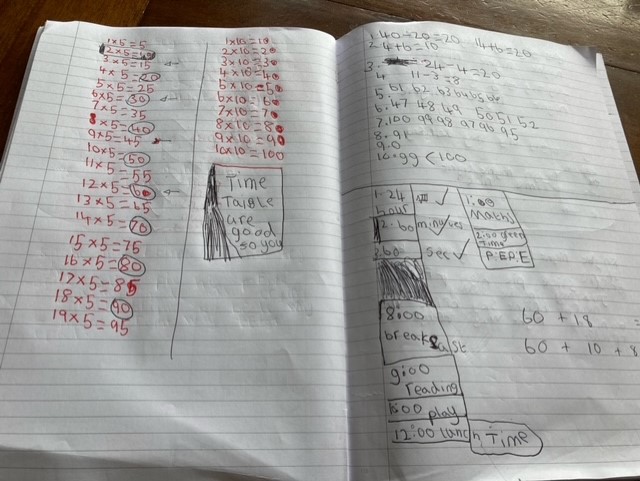 1×5=5
2×5=10
3×5=15
4×5=20
5×5=25
6×5=30
7×5=35
8×5=40
9×5=45
10×5=50
11×5=55
12×5=60
13×5=65
14×5=70
15×5=75
16×5=80
17×5=85
18×5=90
19×5=95
1×10=10
2×10=20
3×10=30
4×10=40
5×10=50
6×10=60
7×10=70
8×10=80
9×10=90
10×10=100
Time
Table
are
good
so you
1.40-20=20 14+6=20
2.4+6=10
3. 24-4=20
4 11-3=8
5.61 62 63 64 65 66
6.47 48 49 50 51 52
7.100 99 98 97 96 95
8.91
9.0
10.99<100
1-24
hour
2.60 minutes
3.60 sec
1:00
Maths
2:00 green
time
P.E P.E
8:00
breakfast
9:00
reading
10:00 play
12:00 lunch Time
60 + 18 =
60 + 10 + 8